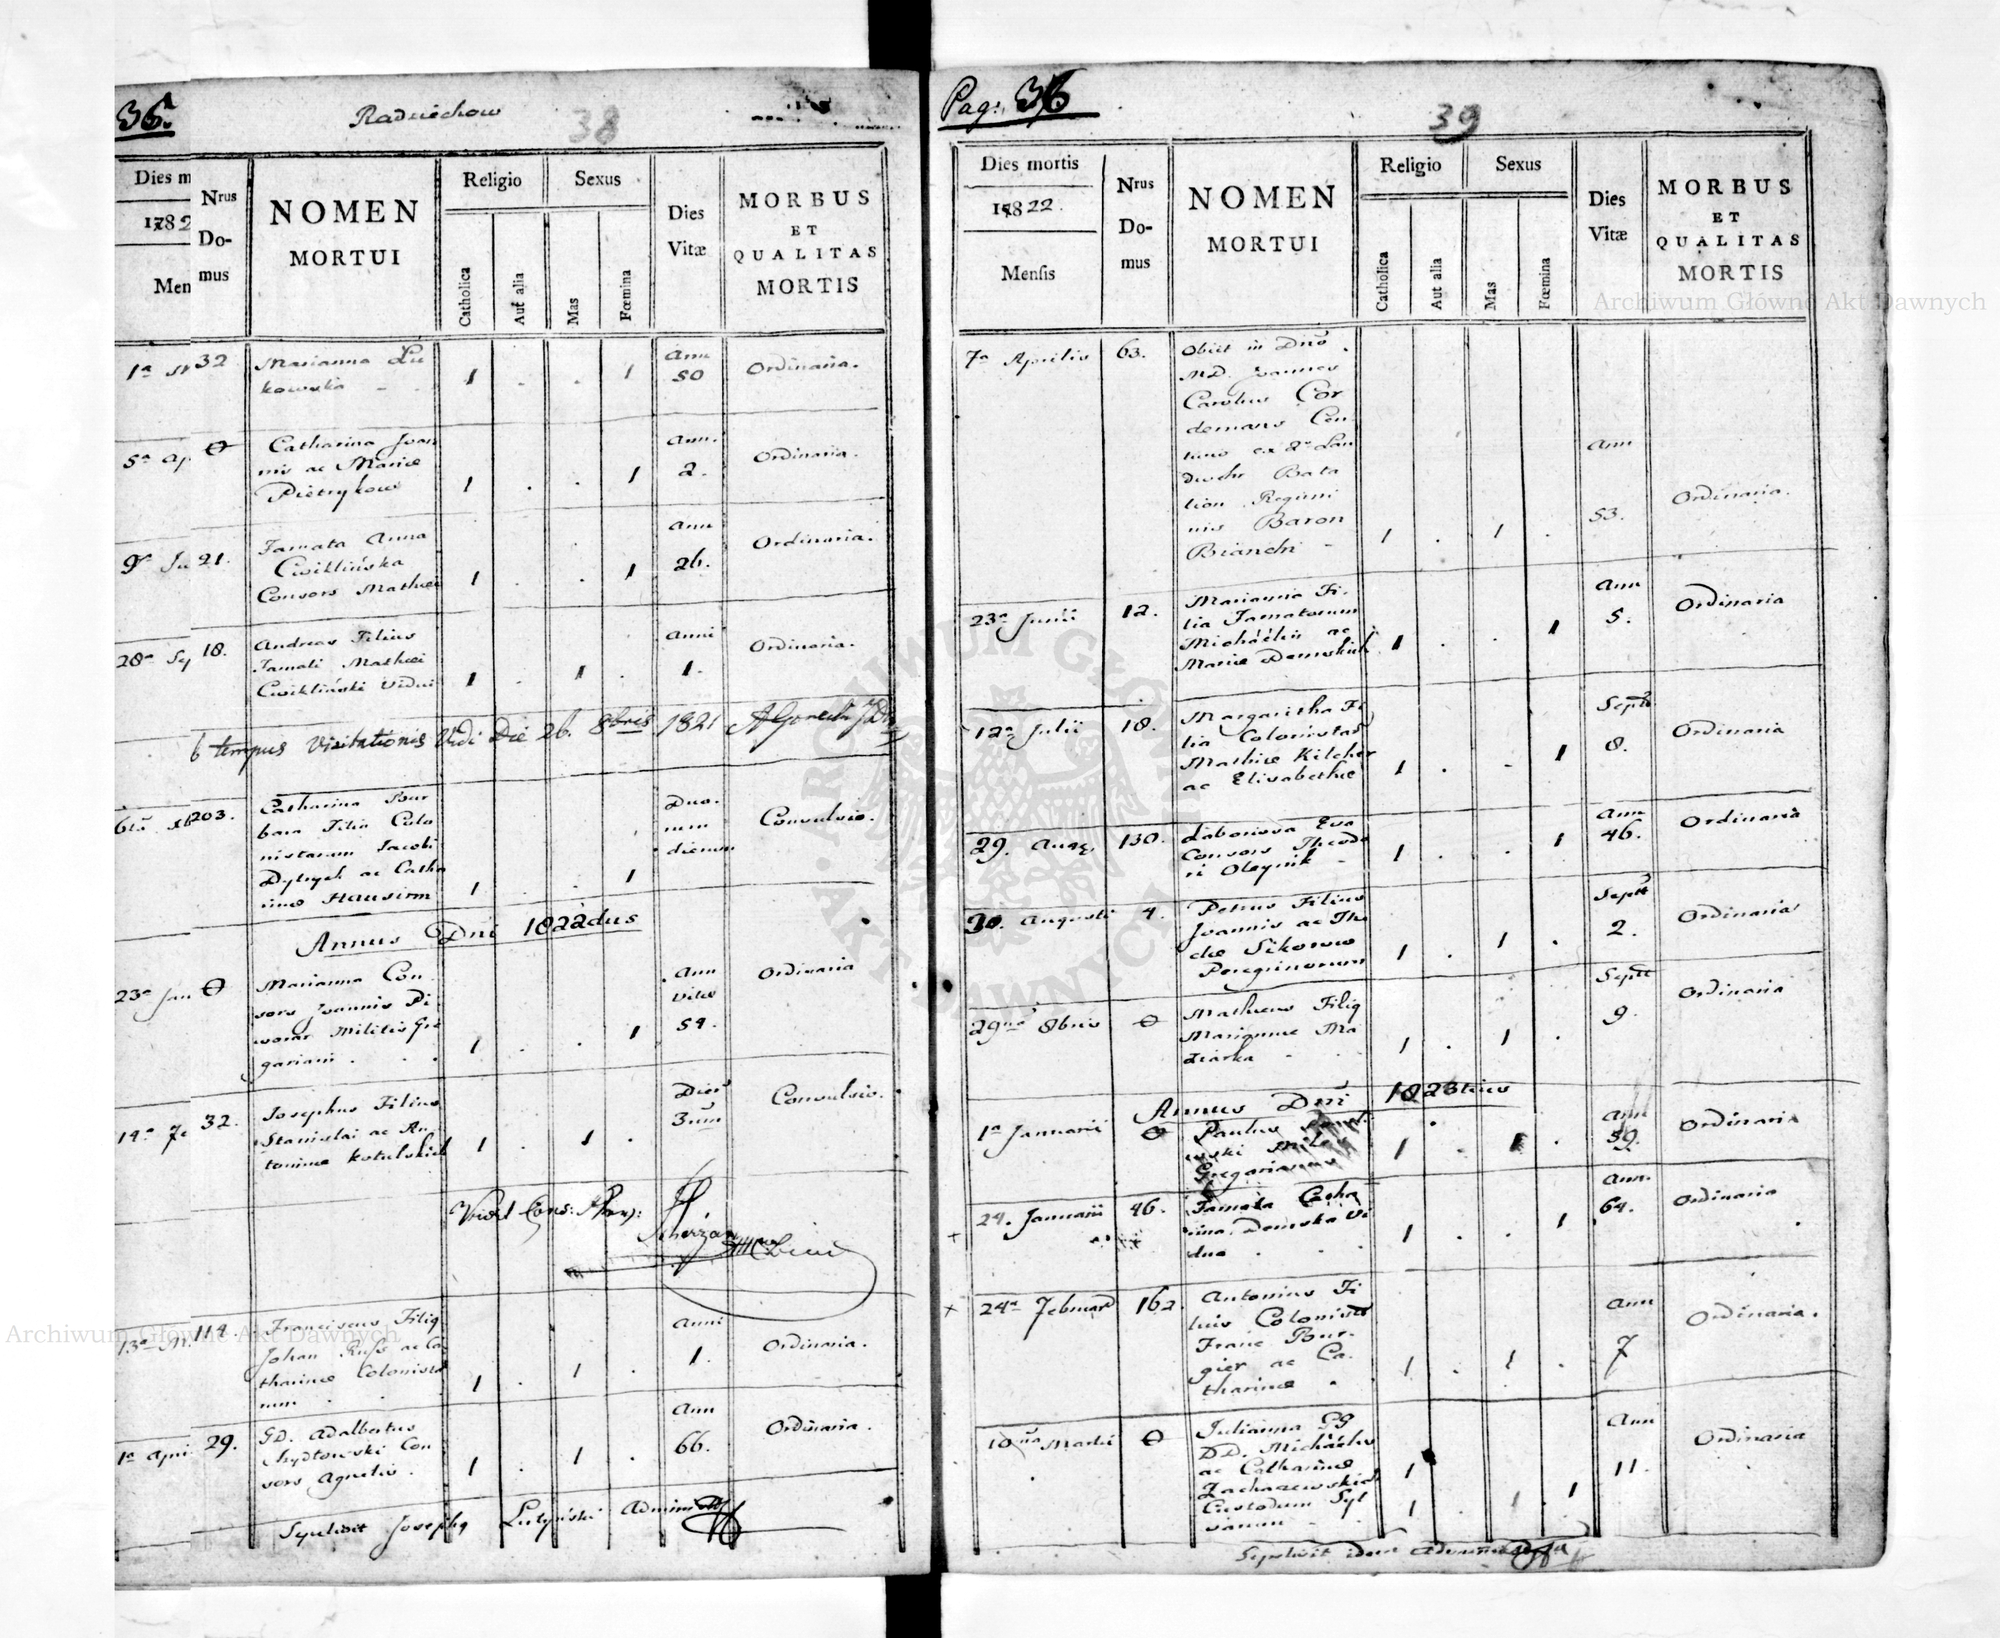 36.
Radziechow
38
Dies m
1782
Men
Nrus
Do-
mus
NOMEN
MORTUI
Religio
Catholica
Aut alia
Sexus
Mas
Fœmina
Dies
Vitæ
MORBUS
ET
QUALITAS
MORTIS
1a
32
Marianna Lu
kowska
1 . . 1
Ann
50
Ordinaria.
5a Ap
Θ
Catharina Joan
nis ac Mariæ
Pietrykow
1 . . 1
Ann.
2.
Ordinaria.
9a Ju
21.
Famata Anna
Cwiklińska
Consors Mathæi
1 . . 1
Ann
26.
Ordinaria.
28a Sep
18.
Andreas Filius
Famati Mathæi
Cwikliński Vidui
1 . 1 .
Anni
1.
Ordinaria.
tempus Visitationis Vidi Die 26. 8bris 1821
203.
Catharina Bur
bara Filia Colo
nistarum Jacobi
Dytrych ac Catha
rinæ Hausirm
1 . . 1
Duo.
rum
dierum
Convulsio.
Annus Dni 1822dus
23a Jan
Θ
Marianna Con
sors Joannis Pi
worar Militis Gre
gariani . . .
1 . . 1
Ann
vitæ
54.
Ordinaria
14a Fe
32.
Josephus Filius
Stanislai ac An
toninæ Kotulskich
1 . 1 .
Dieru
3um
Convulsio.
Vidit Cons:
13a M.
114.
Franciscus Filiq
Johan Russ ac Ca
tharinæ Colonista
rum
1 . 1 .
Anni
1.
Ordinaria.
1a Apri
29.
GD. Adalbertus
Chydtowski Con
sors Agnetis .
1 . 1 .
Ann
66.
Ordinaria.
Sepelivit Josephq Lutyński Administ
Pag: 36
39
Dies mortis
1822.
Mensis
Nrus
Do-
mus
NOMEN
MORTUI
Religio
Catholica
Aut alia
Sexus
Mas
Fœmina
Dies
Vitæ
MORBUS
ET
QUALITAS
MORTIS
7a Aprilis
63.
Obiit in Dno
MD. Joannes
Carolus Cor
demans Cen
turio ex 2o Lan
dwehr Bata
lion Regimi
nis Baron
Bianchi -
1 . 1 .
Ann
53.
Ordinaria.
23a Junii
12.
Marianna Fi
lia Famatorum
Michaelis ac
Mariæ Demskich
1 . . 1
Ann
5.
Ordinaria
12a Julii
18.
Margaritha Fi
lia Colonistar
Mathiæ Kilcher
ac Elisabethæ
1 . . 1
Sept
8.
Ordinaria
29. Aug.
130.
Laboriosa Eva
Consors Theodo
ri Oleynik -
1 . . 1
Ann
46.
Ordinaria
30. Augusti
4.
Petrus Filius
Joannis ac The
clæ Sikorow
Peregrinorum
1 . 1 .
Sept
2.
Ordinaria
29na 8bris
Θ
Mathæus Filiq
Mariannæ Ma
ziarka
1 . 1 .
Sept
9.
Ordinaria
Annus Dni 1823tius
1a Januarii
Θ
Paulus
wski Miles
Gregarianus
1 . 1 .
Ann
59.
Ordinaria
24. Januarii
46.
Famata Catha
rina Demska Vi
dua . . .
1 . . 1
Ann.
64.
Ordinaria
24a Februar
162.
Antonius Fi
lius Colonist
Franc Bur
gier ac Ca
tharinæ .
1 . 1 .
Ann
7
Ordinaria.
10ma Martii
Θ
Julianna GG
DD. Michaelis
ac Catharinæ
Zacharewskich
Custodum Syl
varum
1 . . 1
Ann
11.
Ordinaria
Sepelivit idem Administ
Archiwum Główne Akt Dawnych
Archiwum Główne Akt Dawnych
ARCHIWUM GŁÓWNE AKT DAWNYCH